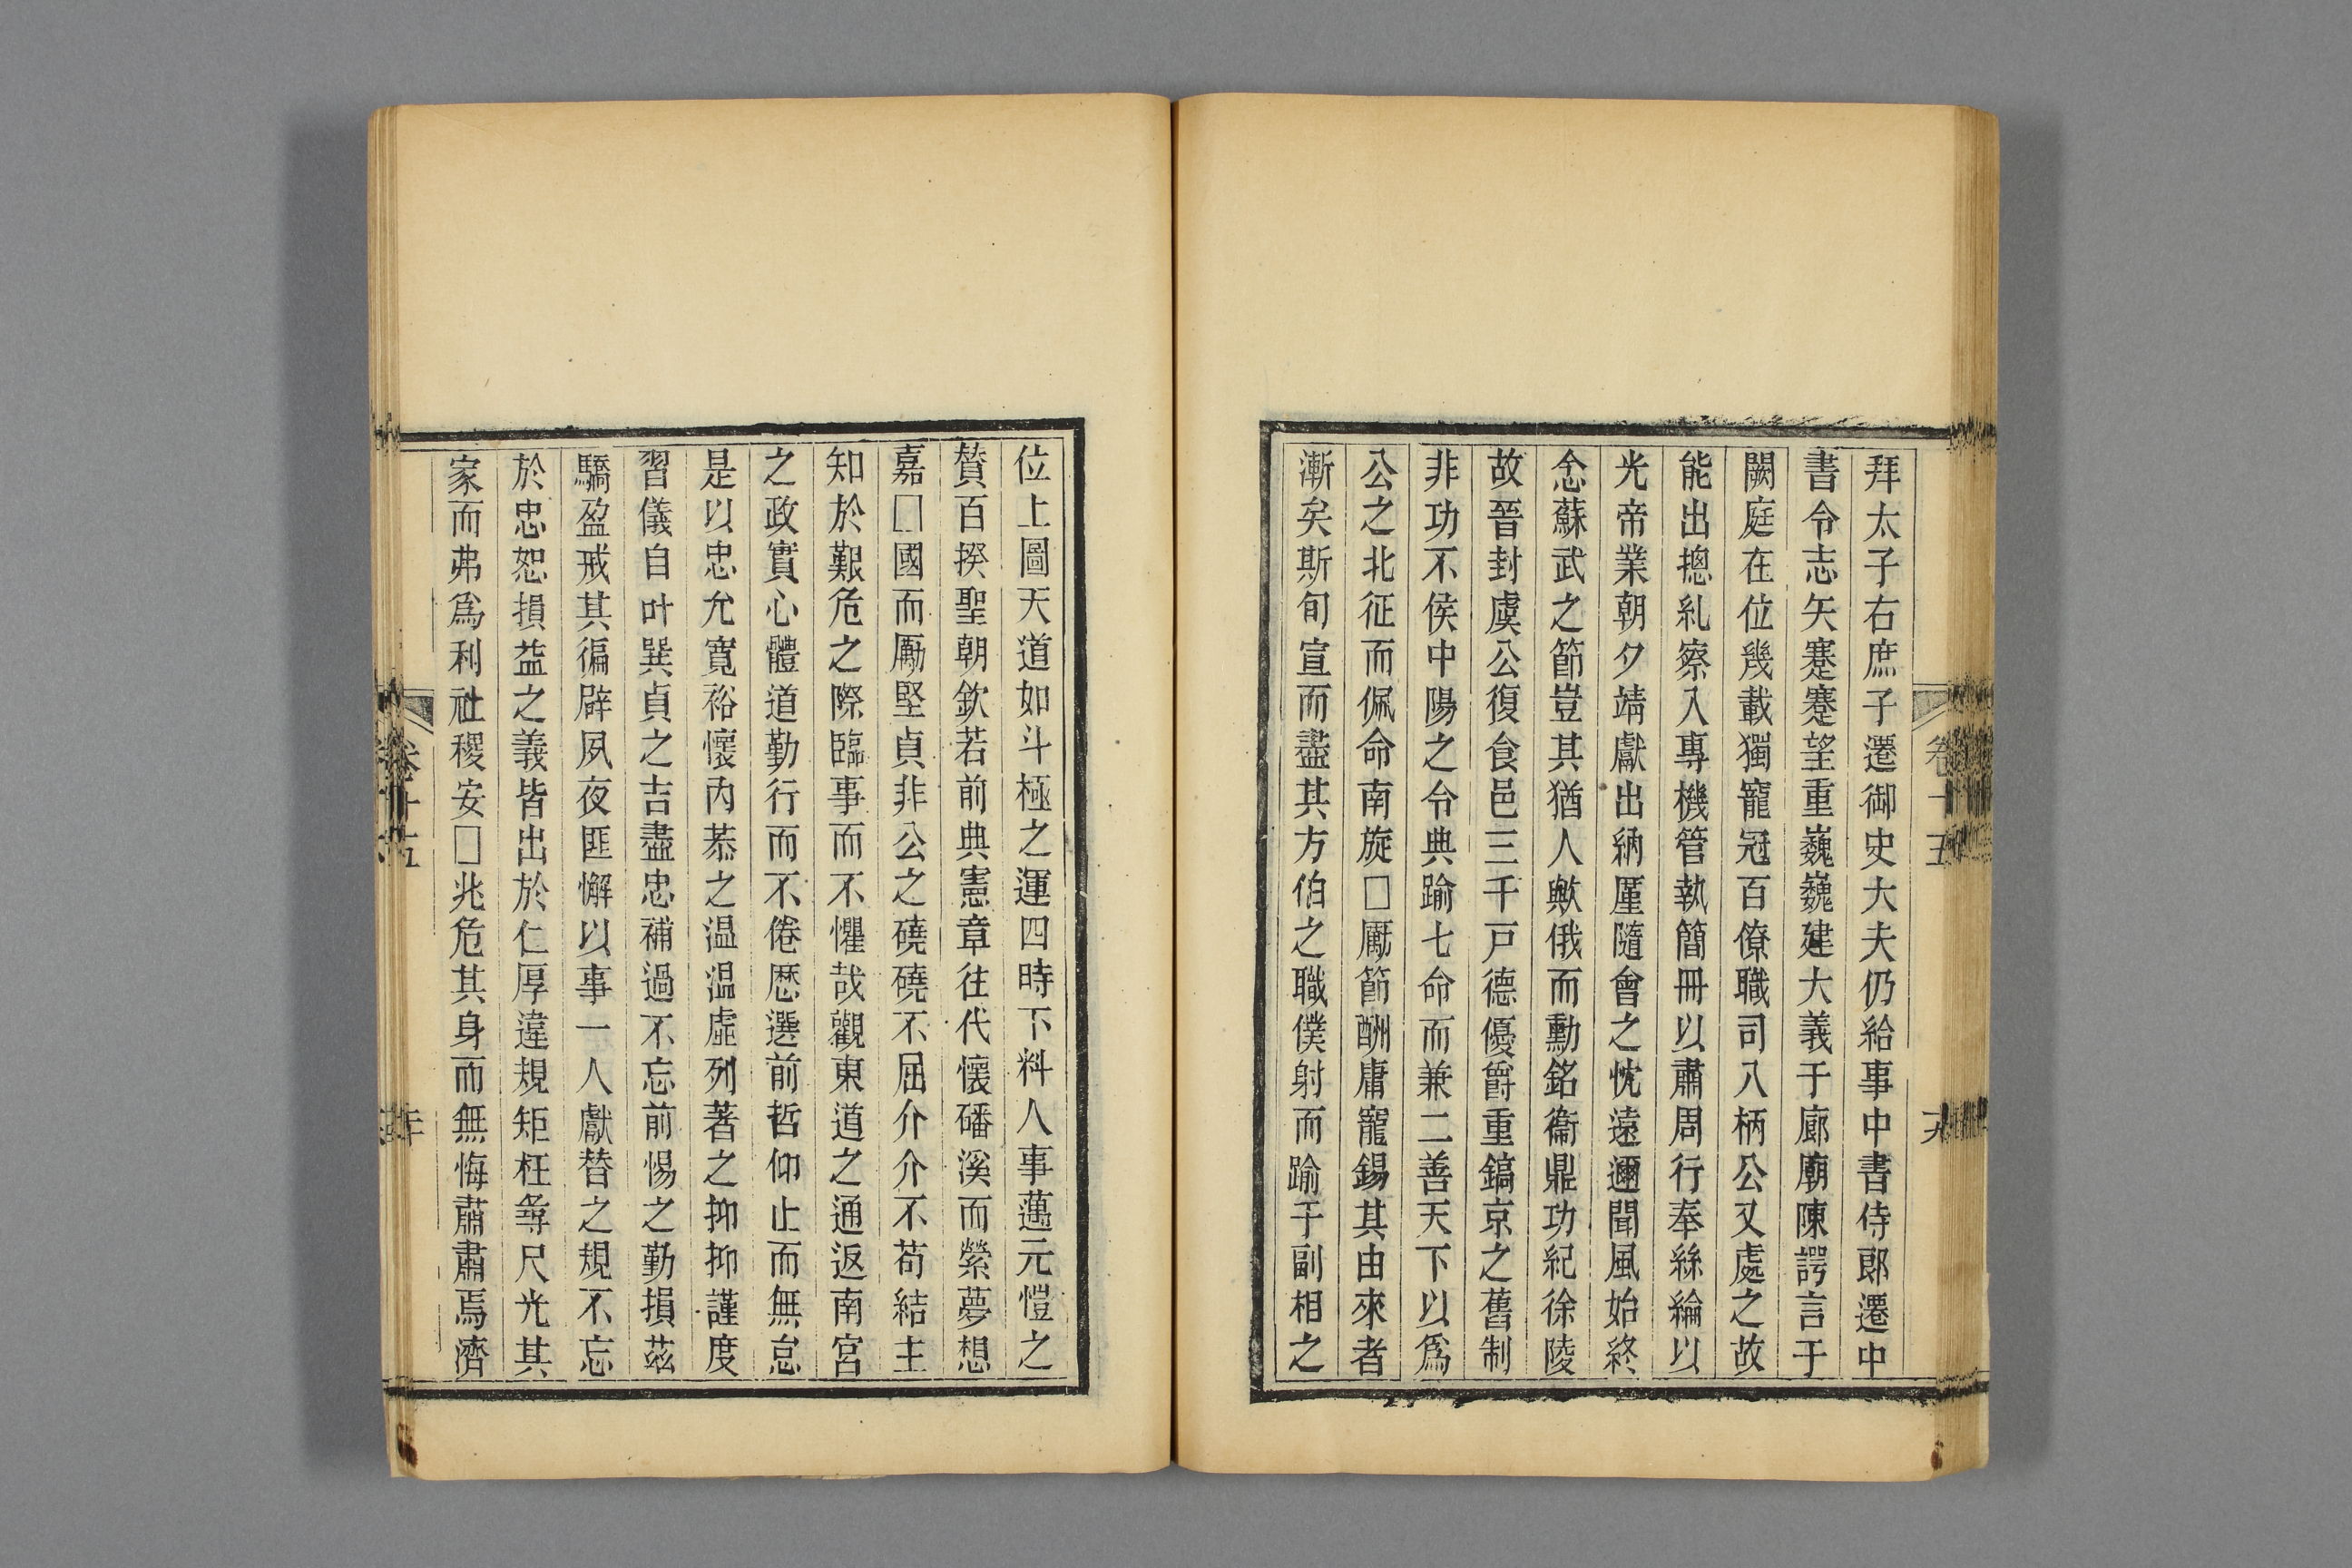 拜太子右庶子遷御史大夫仍給事中書侍郎遷中
書令志矢蹇蹇望重巍巍建大義于廊廟陳諤言于
闕庭在位幾載獨寵冠百僚職司八柄公又處之故
能出摠糺察入專機管執簡冊以肅周行奉絲綸以
光帝業朝夕靖獻出納厪隨會之忱遠邇聞風始終
念蘇武之節豈其猶人歟俄而勳銘衞鼎功紀徐陵
故晉封虞公復食邑三千戸德優爵重鎬京之舊制
非功不侯中陽之令典踰七命而兼二善天下以爲
公之北征而佩命南旋□厲節酬庸寵錫其由來者
漸矣斯旬宣而盡其方伯之職僕射而踰于副相之
卷十五
十九
位上圖天道如斗極之運四時下料人事邁元愷之
贊百揆聖朝欽若前典憲章往代懷磻溪而縈夢想
嘉□國而厲堅貞非公之磽磽不屈介介不苟結主
知於艱危之際臨事而不懼哉觀東道之通返南宮
之政實心體道勤行而不倦歴選前哲仰止而無怠
是以忠允寬裕懷內恭之温温虛列著之抑抑謹度
習儀自叶巽貞之吉盡忠補過不忘前惕之勤損茲
驕盈戒其徧辟夙夜匪懈以事一人獻替之規不忘
於忠恕損益之義皆出於仁厚違規矩枉尋尺光其
家而弗爲利社稷安□兆危其身而無悔蕭肅焉濟
卷十五